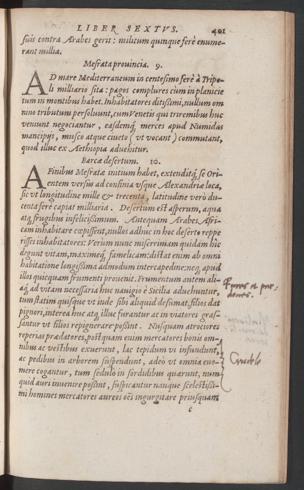 LIBER SEXTVS. 401
suis contra Arabes gerit: militum quinque ferè enume-
rant millia.
Mesrata provincia. 9.
AD mare Mediterraneum in centesimo ferè à Tripo-
li milliario sita: pagos complures cum in planicie
tum in montibus habet. Inhabitatores ditissimi, nullum om
nino tributum persolvunt, cum Venetis qui triremibus huc
veniunt negociantur, easdemq́; merces apud Numidas
mancipijs, musco atque civeto (ut vocant) commutant,
quod illuc ex Aethiopia advehitur.
Barcæ desertum. 10.
A Finibus Mesratæ initium habet, extenditq́; se Ori-
entem versùs ad confinia usque Alexandriæ loca,
sic ut longitudine mille & trecenta, latitudine verò du-
centa ferè capiat milliaria. Desertum est asperum, aqua
atq́; frugibus infelicissimum. Antequam Arabes Afri-
cam inhabitare cœpissent, nullos adhuc in hoc deserto reppe
risses inhabitatores: Verùm nunc miserrimam quidam hîc
degunt vitam, maximeq́; famelicam: distat enim ab omni
habitatione longissimo admodum intercapedine: neq́; apud
illos quicquam frumenti provenit. Frumentum autem alia-
q́; ad vitam necessaria huc navigio è Sicilia advehuntur,
tum statim quisque ut inde sibi aliquid desumat, filios dat
pignori, interea huc atq́; illuc furantur ac in viatores gras-
santur ut filios repignerare possint. Nusquam atrociores
reperias prædatores, postquam enim mercatores bonis om-
nibus ac vestibus exuerunt, lac tepidum vi infundunt,
ac pedibus in arborem suspendunt, adeò ut omnia evo-
mere cogantur, tum sedulò in sordidibus quærunt, num
quid auri invenire possint, suspicantur namque scelestissi-
mi homines mercatores aureos oẽs ingurgitare priusquam
c